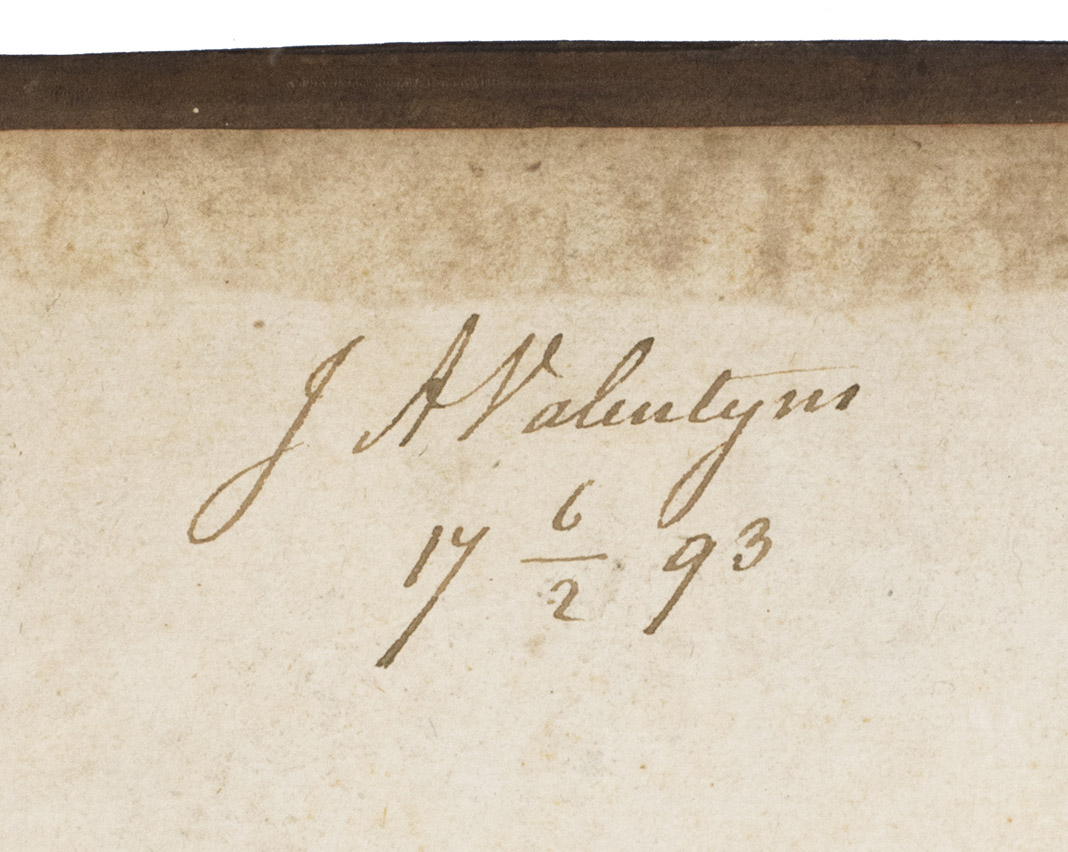 J A Valentyn
17 6/2 93